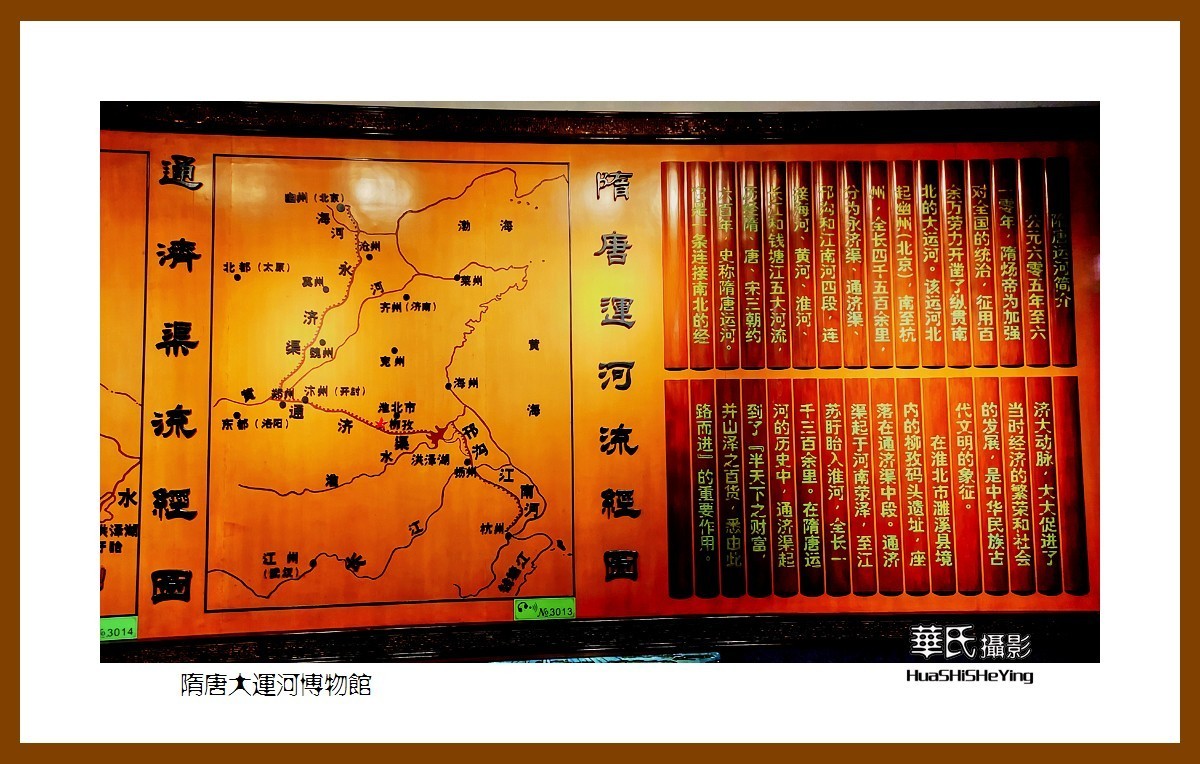 隋唐運河流經圖
隋唐运河简介
公元六零五年至六
一零年，隋炀帝为加强
对全国的统治，征用百
余万劳力开凿了纵贯南
北的大运河。该运河北
起幽州（北京），南至杭
州，全长四千五百余里，
分为永济渠、通济渠、
邗沟和江南河四段，连
接海河、黄河、淮河、
长江和钱塘江五大河流，
历经隋、唐、宋三朝约
六百年，史称隋唐运河。
它是一条连接南北的经
济大动脉，大大促进了
当时经济的繁荣和社会
的发展，是中华民族古
代文明的象征。
在淮北市濉溪县境
内的柳孜码头遗址，座
落在通济渠中段。通济
渠起于河南荥泽，至江
苏盱眙入淮河，全长一
千三百余里。在隋唐运
河的历史中，通济渠起
到了『半天下之财富，
并山泽之百货，悉由此
路而进』的重要作用。
幽州（北京）
海河
渤海
沧州
北都（太原）
永济渠
冀州
河
莱州
齐州（济南）
魏州
兖州
黄海
海州
黄
郑州
汴州（开封）
东都（洛阳）
通济渠
淮北市
柳孜
洪泽湖
淮水
邗沟
扬州
江南河
杭州
长江
江州
（武汉）
钱塘江
№3013
通濟渠流經圖
水
洪泽湖
盱眙
№3014
華氏攝影
HuaSHiSHeYing
隋唐大運河博物館